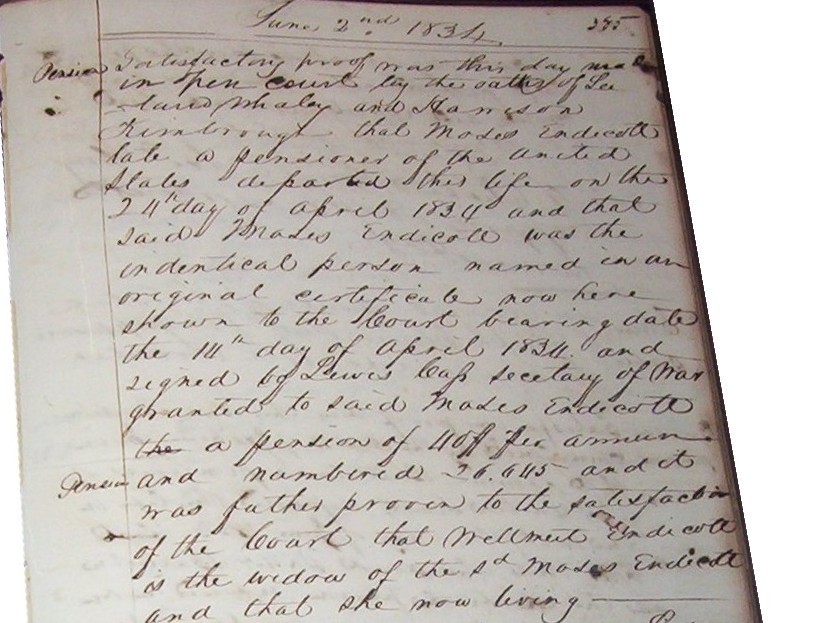 June 2nd 1834. 335
Pension Satisfactory proof was this day made
in open court by the oaths of Le
tured Whaley and Harrison
Kimbrough that Moses Endicott
late a pensioner of the United
States departed this life on the
24th day of April 1834 and that
said Moses Endicott was the
indentical person named in an
original certificate now here
shown to the Court bearing date
the 14th day of April 1834. and
signed by Lewis Cass Secetary of War
granted to said Moses Endicott
the a pension of 40$ per annum
Pension and numbered 26.645 and it
was father proven to the satisfaction
of the Court that Wellmeit Endicott
is the widow of the sd Moses Endicott
and that she now living